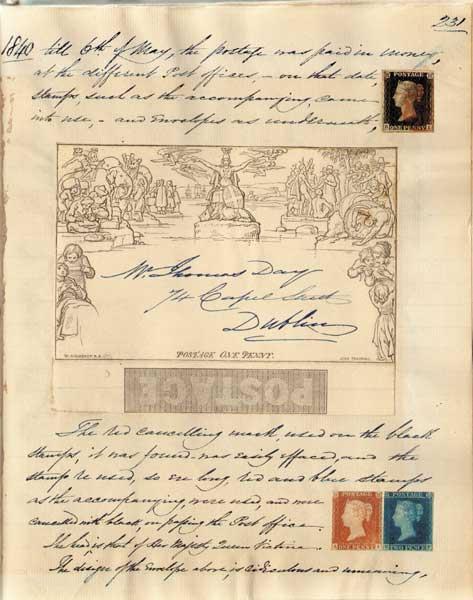 231
1840 till 6th of May, the postage was paid in money,
at the different Post offices, - on that date,
stamps, such as the accompanying came
into use, - and Envelopes as underneath,
POSTAGE
ONE PENNY
Mr Thomas Day
74 Capel Street
Dublin
W. MULREADY R.A.
JOHN THOMPSON
POSTAGE ONE PENNY.
POSTAGE
The red cancelling mark, used on the black
stamps, it was found was easily effaced, and the
stamp re used, so ere long, red and blue stamps
as the accompanying were used, and were
cancelled with black, on passing the Post office.
The head is that of Her Majesty Queen Victoria.
The design of the Envelope above, is ridiculous and unmeaning,
POSTAGE
ONE PENNY
POSTAGE
TWO PENCE